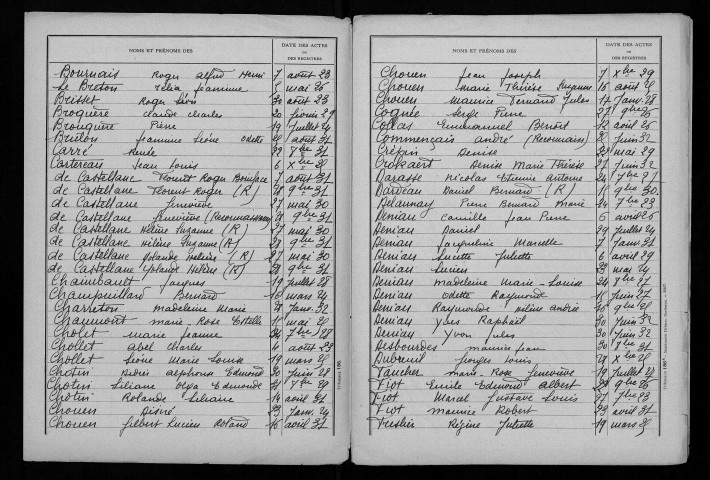 NOMS ET PRÉNOMS DES
DATE DES ACTES
OU
DES REGISTRES
Bournais Roger Alfred Henri 7 août 23
Le Breton Célia Jeannine 5 mai 26
Brisset Roger Léon 30 août 23
Broquère Claude Charles 20 février 29
Brouquère Pierre 19 juillet 24
Brulon Jeannine Léone Odette 28 août 31
Carré Renée 23 7bre 31
Castereau Jean Louis 6 Xbre 28
de Castellane Florent Roger Boniface 7 août 31
de Castellane Florent Roger (R) 28 9bre 31
de Castellane Geneviève 27 mai 30
de Castellane Geneviève (Reconnaissance) 28 9bre 31
de Castellane Hélène Suzanne (R) 27 mai 30
de Castellane Hélène Suzanne (R) 28 9bre 31
de Castellane Yolande Hélène (R) 27 mai 30
de Castellane Yolande Hélène (R) 28 9bre 31
Chaimbault Jacques 19 juillet 28
Champuillard Bernard 16 mars 24
Charreton Madeleine Marie 4 janv. 32
Chaumont Marie-Rose Estelle 11 mai 28
Cholet Marie Jeanne 24 7bre 28
Chollet Abel Charles août 23
Chollet Léone Marie Louise 19 mars 25
Chotin Didier Alphonse Edmond 30 juin 28
Chotin Liliane Olga Edmonde 21 7bre 29
Chotin Rolande Liliane 14 août 31
Chouen Désiré 23 janv. 24
Chouen Gilbert Lucien Roland 16 avril 31
NOMS ET PRÉNOMS DES
DATE DES ACTES
OU
DES REGISTRES
Chouen Jean Joseph 7 Xbre 29
Chouen Marie Thérèse Suzanne 16 août 28
Chouen Maurice Fernand Jules 17 janv. 28
Cognée Serge Pierre 27 9bre 26
Collas Emmanuel Benoît 12 août 26
Commençais André (Reconnais) 8 juin 32
Crépin Denise 23 mai 29
Crokaert Denise Marie Thérèse 27 juin 32
Darasse Nicolas Etienne Antoine 24 7bre 31
Dardeau Daniel Bernard (R) 18 9bre 30
Delaunay Pierre Bernard Marie 24 7bre 23
Denian Camille Jean Pierre 6 avril 26
Denian Daniel 29 juillet 24
Denian Jacqueline Marcelle 7 janv. 31
Denian Lucette Juliette 6 avril 29
Denian Lucien 23 mai 24
Denian Madeleine Marie-Louise 24 7bre 27
Denian Odette Raymonde 15 juin 27
Denian Raymonde Hélène Andrée 16 9bre 28
Denian Yves Raphaël 30 juin 32
Denian Yvon Jules 30 juin 32
Desbourdes Maurice Jean 30 7bre 31
Dubreuil Georges Louis 28 Xbre 28
Faucher Marie-Rose Geneviève 19 juillet 28
Fiot Emile Edmond Albert 23 9bre 26
Fiot Marcel Gustave Louis 27 7bre 23
Fiot Maurice Robert 23 avril 31
Freslier Régine Juliette 19 mars 25